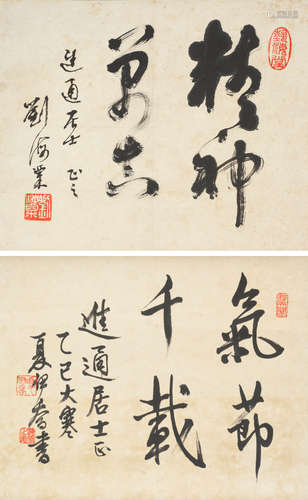 精神
萬古
進通居士 正之
劉海粟
氣節
千載
進通居士正
乙巳大寒
夏伊喬書